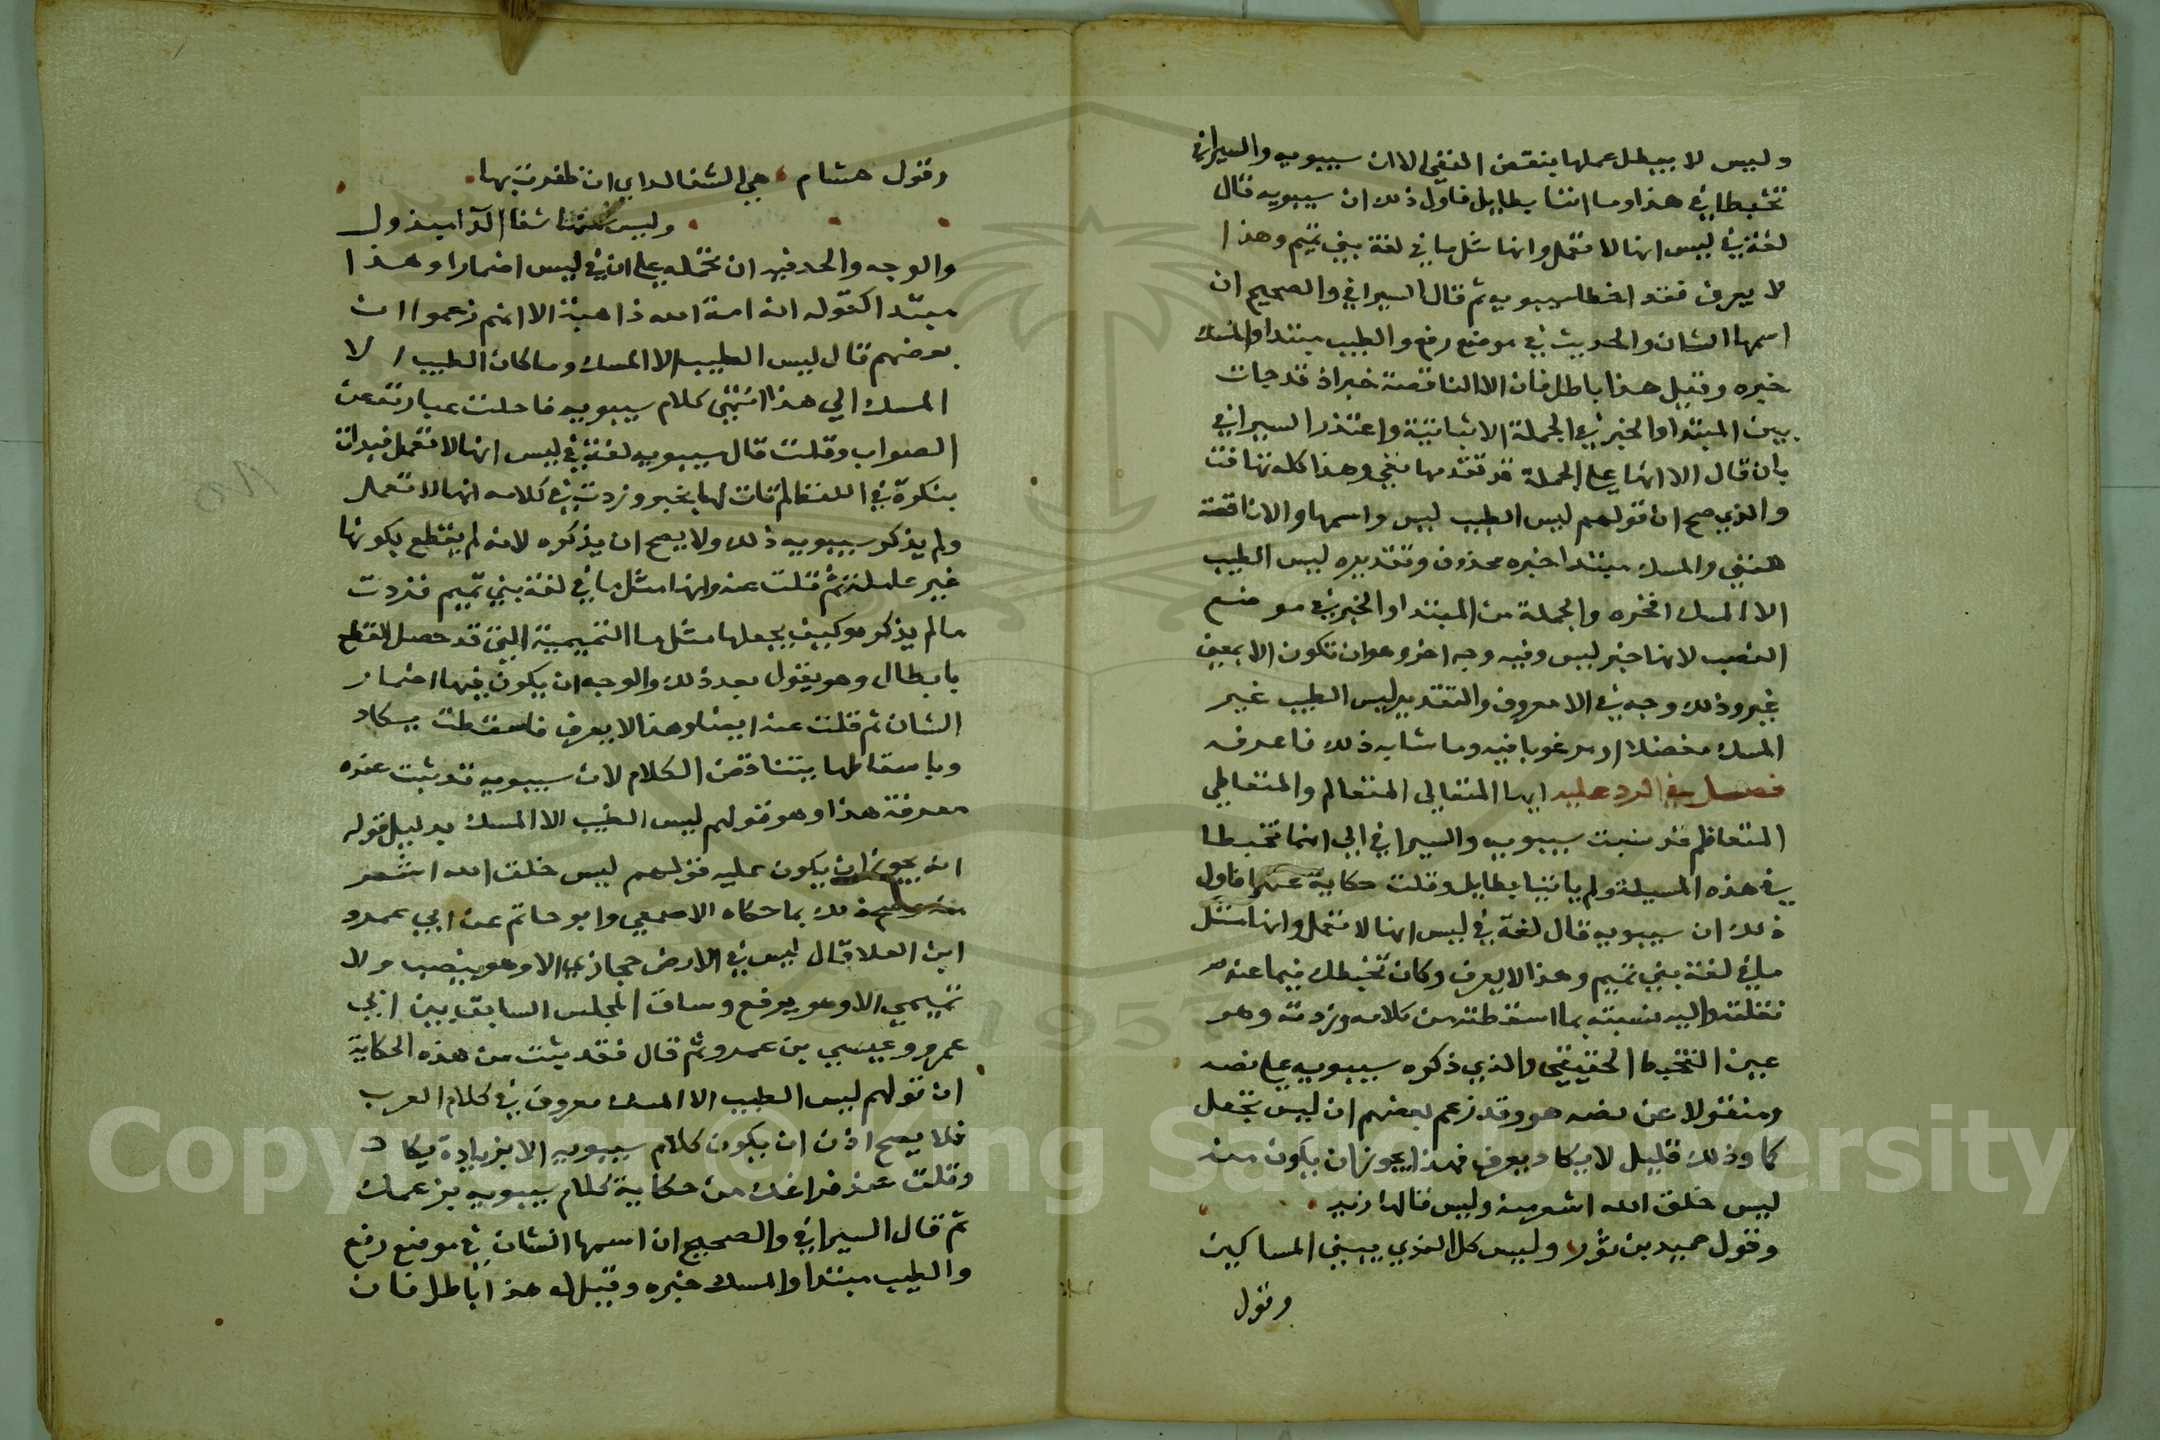 وليس لا يبطل عملها بنقض النفي الا ان سيبويه والسيرافي
تخبطا في هذا وما اتيا بطايل فاول ذلك ان سيبويه قال
لغة في ليس انها لا تعمل وانها مثل ما في لغة بني تميم وهذا
لا يعرف فقد اخطا سيبويه ثم قال السيرافي والصحيح ان
اسمها الشان والحديث في موضع رفع والطيب مبتدا والمسك
خبره وقيل هذا باطل فان الا الناقضة خبرا اذ قد جات
بين المبتدا والخبر في الجملة الاثباتية واعتذر السيرافي
بان قال الا انها على الجملة قد تقدمها نفي وهذا كله تهافت
والذي صح ان قولهم ليس الطيب ليس واسمها والا ناقضة
للنفي والمسك مبتدا خبره محذوف وتقديره ليس الطيب
الا المسك افخره والجملة من المبتدا والخبر في موضع
النصب لانها خبر ليس وفيه وجه اخر وهو ان تكون الا بمعنى
غير وذلك وجه في الا معروف والتقدير ليس الطيب غير
المسك مفضلا او مرغوبا فيه وما شابه ذلك فاعرفه
فصل في الرد عليه ايها المتغالي المتعالم والمتعاطي
المتعاظم قد نسبت سيبويه والسيرافي الي انهما تخبطا
في هذه المسيلة ولم ياتيا بطايل وقلت حكاية عنهما فاول
ذلك ان سيبويه قال لغة في ليس انها لا تعمل وانها مثل
ما في لغة بني تميم وهذا لا يعرف وكان تخبطك فيما عنه
نقلته واليه نسبته بما اسقطته من كلامه وزدته وهو
عين التخبط الحقيقي والذي ذكره سيبويه على نصه
ومنقولا عن نصه هو وقد زعم بعضهم ان ليس تجعل
كما وذلك قليل لا يكاد يعرف فهذا يجوز ان يكون منه
ليس خلق الله اشعر منه وليس قالها زيد
وقول حميد بن ثور وليس كل النوي يبني المساكين
وقول
وقول هشام هي الشفا لداي ان ظفرت بها
وليس منها شفا الدا مبذول
والوجه والحد فيه ان تحمله على ان في ليس اضمارا وهذا
مبتدا كقوله انه امة الله ذاهبة الا انهم زعموا ان
بعضهم قال ليس الطيب الا المسك وما كان الطيب الا
المسك الي هذا انتهى كلام سيبويه فاحلت عبارته عن
الصواب وقلت قال سيبويه لغة في ليس انها لا تعمل فبدات
بنكرة في اللفظ لم تات لها بخبر وزدت في كلامه انها لا تعمل
ولم يذكر سيبويه ذلك ولا يصح ان يذكره لانه لم يقطع بكونها
غير عاملة ثم قلت عنه وانها مثل ما في لغة بني تميم فزدت
ما لم يذكر وكيف يجعلها مثل ما التميمية التي قد حصل القطع
بابطال وهو يقول بعد ذلك والوجه ان يكون فيها اضمار
الشان ثم قلت عنه ايضا وهذا لا يعرف فاسقطت يكاد
وباسقاطها يتناقض الكلام لان سيبويه قد ثبت عنده
معرفة هذا وهو قولهم ليس الطيب الا المسك بدليل قوله
انه يجوز ان يكون عليه قولهم ليس خلق الله اشعر
منه وصح ذلك بما حكاه الاصمعي وابو حاتم عن ابي عمرو
ابن العلا قال ليس في الارض حجازي الا وهو ينصب ولا
تميمي الا وهو يرفع وساق المجلس السابق بين ابي
عمرو وعيسى بن عمرو ثم قال فقد ثبت من هذه الحكاية
ان قولهم ليس الطيب الا المسك معروف في كلام العرب
فلا يصح اذن ان يكون كلام سيبويه الا بزيادة يكاد
وقلت عند فراغك من حكاية كلام سيبويه بزعمك
ثم قال السيرافي والصحيح ان اسمها الشان في موضع رفع
والطيب مبتدا والمسك خبره وقيل له هذا باطل فان
Copyright © King Saud University
1957